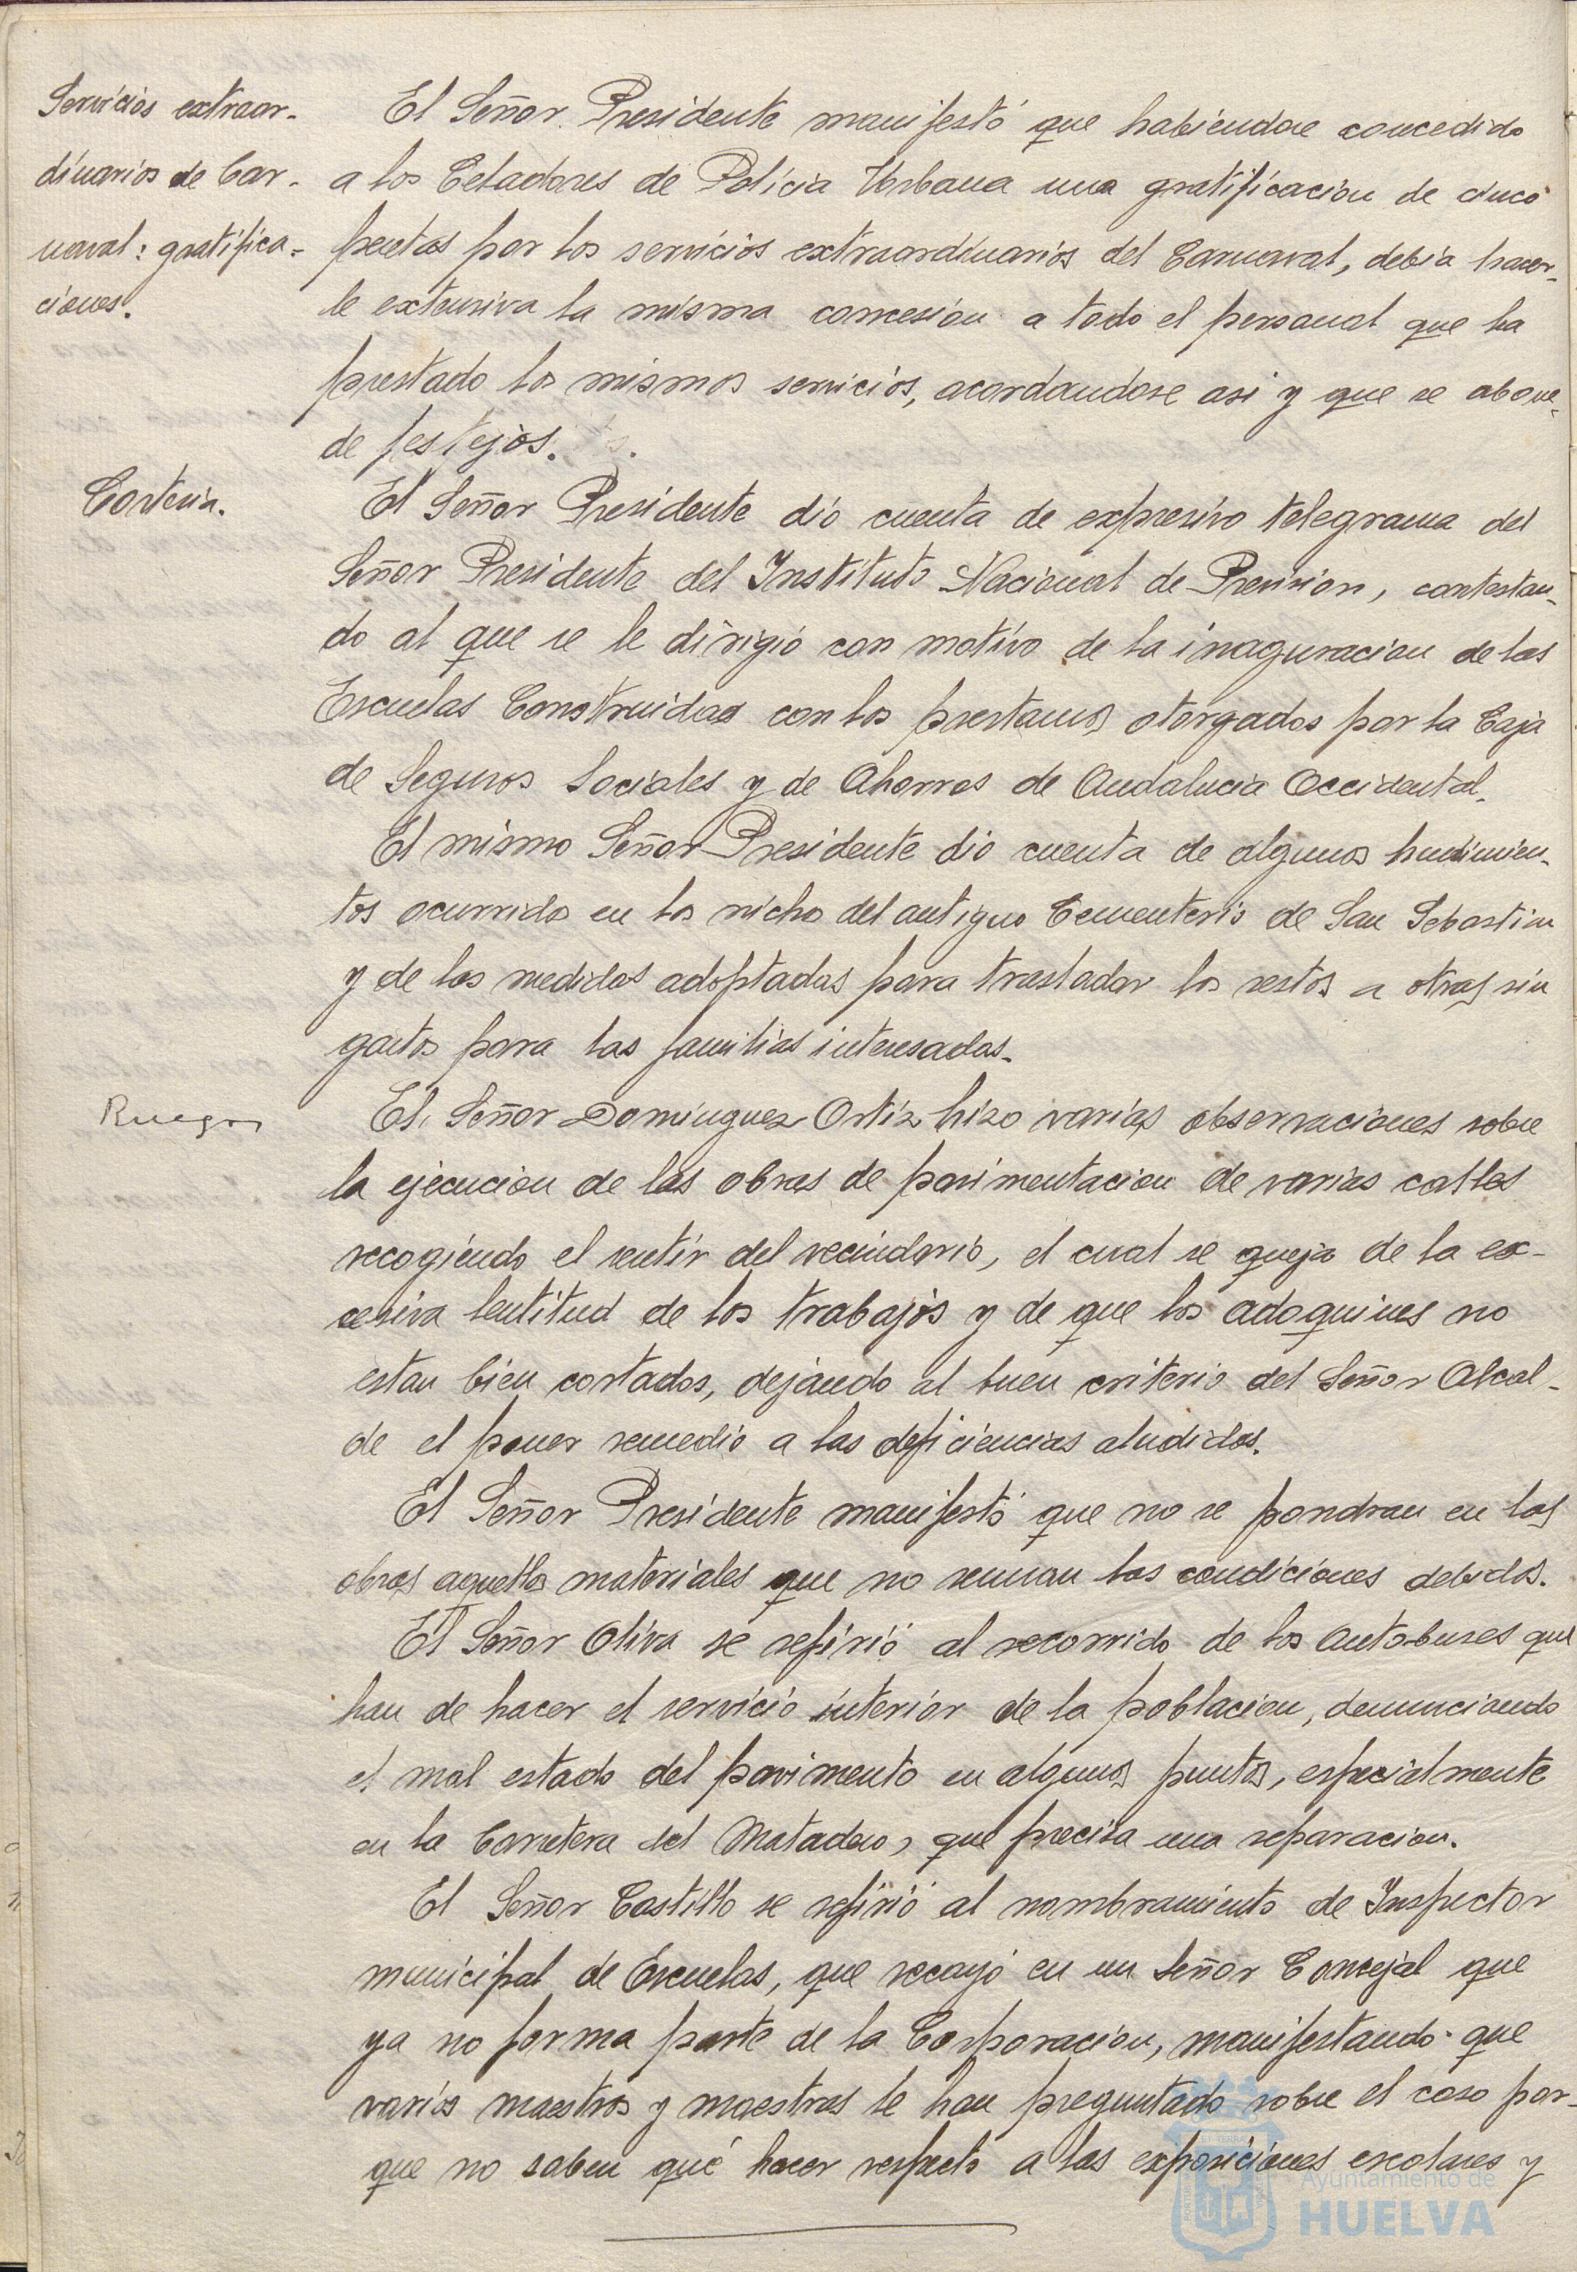 Servicios extraor-
dinarios de Car-
naval: gratifica-
ciones.
El Señor Presidente manifestó que habiendose concedido
a los Celadores de Policia Urbana una gratificacion de cinco
pesetas por los servicios extraordinarios del Carnaval, debia hacer-
le extensiva la misma concesión a todo el personal que ha
prestado los mismos servicios, acordandose asi y que se abone
de festejos.
Corteria.
El Señor Presidente dió cuenta de expresivo telegrama del
Señor Presidente del Instituto Nacional de Prevision, contestan-
do al que se le dirigió con motivo de la inaguracion de las
Escuelas Construidas con los prestamos otorgados por la Caja
de Seguros Sociales y de Ahorros de Andalucia Occidental.
El mismo Señor Presidente dió cuenta de algunos hundimien-
tos ocurridos en los nichos del antiguo Cementerio de San Sebastian
y de las medidas adoptadas para trasladar los restos a otros sin
gastos para las familias interesadas.
Ruegos
El Señor Dominguez Ortiz hizo varias observaciones sobre
la ejecucion de las obras de pavimentacion de varias calles
recogiendo el sentir del vecindario, el cual se queja de la ex-
cesiva lentitud de los trabajos y de que los adoquines no
estan bien cortados, dejando al buen criterio del Señor Alcal-
de el poner remedio a las deficiencias aludidas.
El Señor Presidente manifestó que no se pondran en las
obras aquellos materiales que no reunan las condiciones debidas.
El Señor Oliva se refirió al recorrido de los autobuses que
han de hacer el servicio interior de la poblacion, denunciando
el mal estado del pavimento en algunos puntos, especialmente
en la Carretera del Matadero, que precisa una reparacion.
El Señor Castillo se refirió al nombramiento de Inspector
municipal de Escuelas, que recayó en un Señor Concejal que
ya no forma parte de la Corporacion, manifestando que
varios maestros y maestras le han preguntado sobre el caso por-
que no saben qué hacer respecto a las exposiciones escolares y
Ayuntamiento de
HUELVA